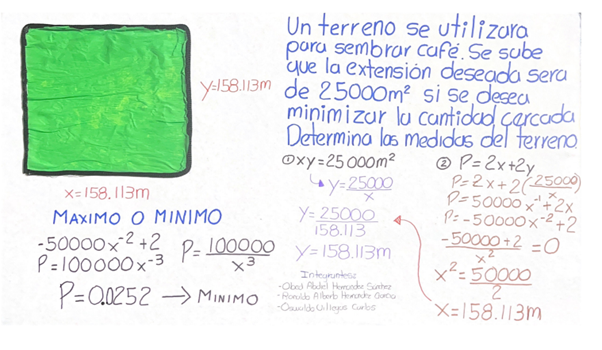 Un terreno se utilizara
para sembrar café. Se sabe
que la extensión deseada sera
de 25000m² si se desea
minimizar la cantidad cercada
Determina las medidas del terreno.
y=158.113m
x=158.113m
MAXIMO O MINIMO
-50000x⁻²+2
P=100000x⁻³
P=100000/x³
P=0.0252 → MINIMO
① xy=25000m²
y=25000/x
y=25000/158.113
y=158.113m
② P=2x+2y
P=2x+2(25000/x)
P=50000x⁻¹+2x
P=-50000x⁻²+2
-50000+2/x²=0
x²=50000/2
x=158.113m
Integrantes:
-Obed Abdiel Hernandez Sanchez
-Ronaldo Alberto Hernandez Garcia
-Oswaldo Villegas Carlos